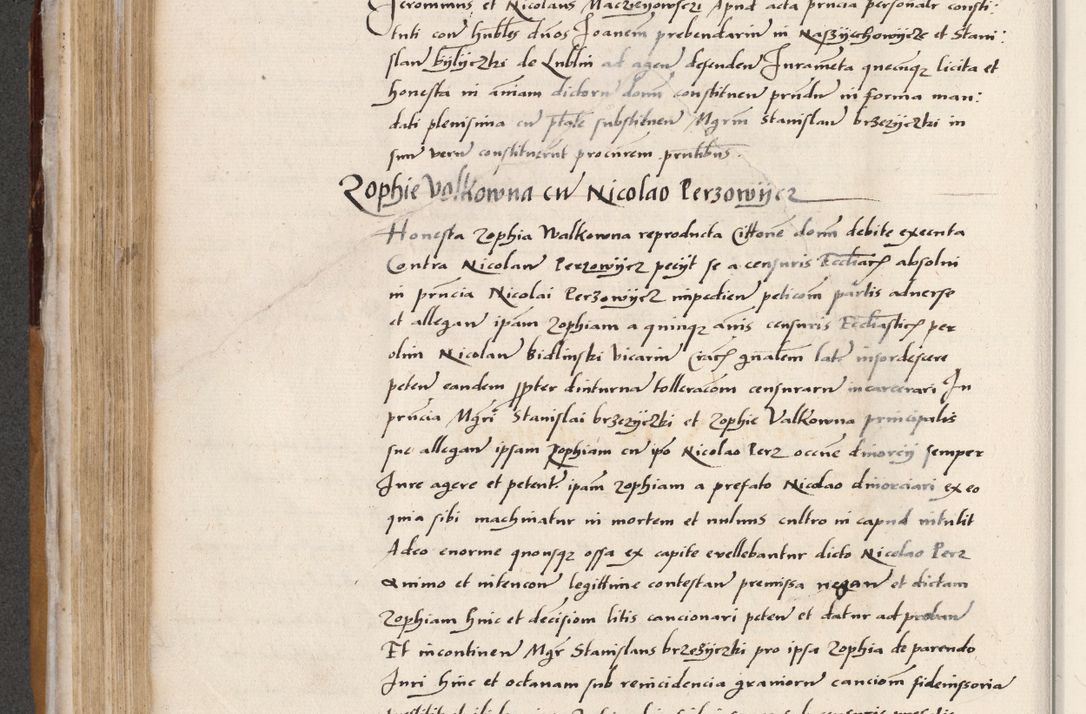 Jeronimus et Nicolaus Maczieyowsczi Apud acta pñcia personalr consti:
tuti con hñbles dños Joanem prebendariu in Naszyechowijcze et Stani:
slau bylyczki de Lublin ad agen defenden Juramēta quecunqz licita et
honesta in aniam dictoru domi constituen prñdu in forma man:
dati plenisima cu ptāte substituen Mgrm Stanislau brzezyczki in
suu veru constituerūt procurem pñtibus
Zophie Valkowna cu Nicolao Perzowijcz
Honesta Zophia Walkowna reproducta Cittōne domi debite executa
Contra Nicolau Perzowijcz pecijt se a censuris Eccliarꝝ absolui
in pñcia Nicolai Perzowijcz inpedien peticom pārtis aduerse
et allegan ipām Zophiam a quinqz anis censuris Eccliasticꝝ per
olim Nicolau Bidlinski vicariu Cracꝝ gñalem late insordescere
peten eandem ꝓpter diuturna tolleracom censuraru incarcerari In
pñcia Mgri Stanislai brzezyczki et Zophie Valkowna principalis
sue allegan ipsam Zophiam cu ipo Nicolao Perz occne diuorcij semper
Jure agere et petent ipām Zophiam a prefato Nicolao diuorciari ex eo
quia sibi machinatur in mortem et nuluus cultro in capud intulit
Adeo enorme quousqz ossa ex capite euellebantur dicto Nicolao Perz
Quinimo et intencon legittime contestan premissa negan et dictam
Zophiam hinc et decisiom litis caucionari peten et datur ad proban
Et incontinen Mgr Stanislaus brzezyczki pro ipsa Zophia de parendo
Juri hinc et octanam sub reincidencia grauioru cauciom fideiussoria